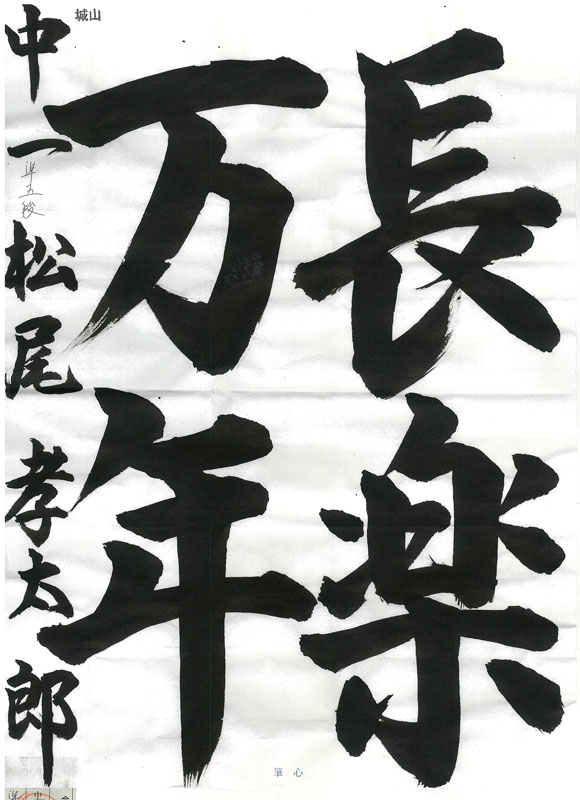 長楽
万年
中一 松尾孝太郎
準五段
城山
筆心
中